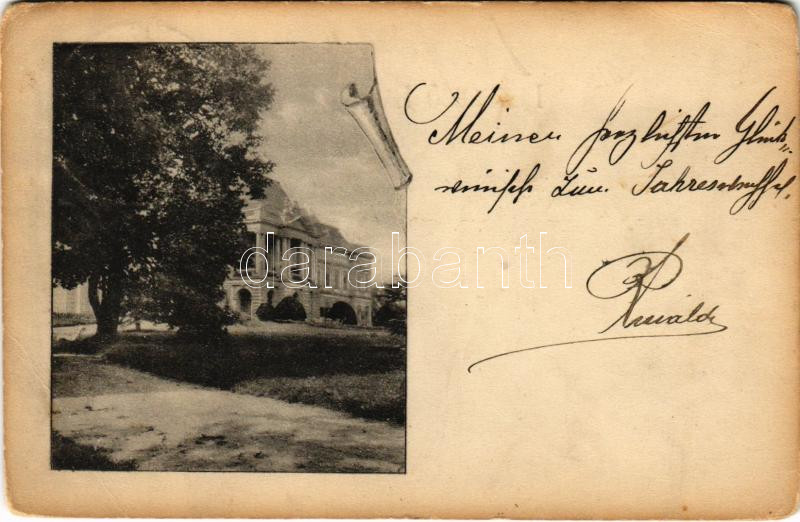 Meinen herzlichsten Glück-
wunsch zum Jahreswechsel.
darabanth